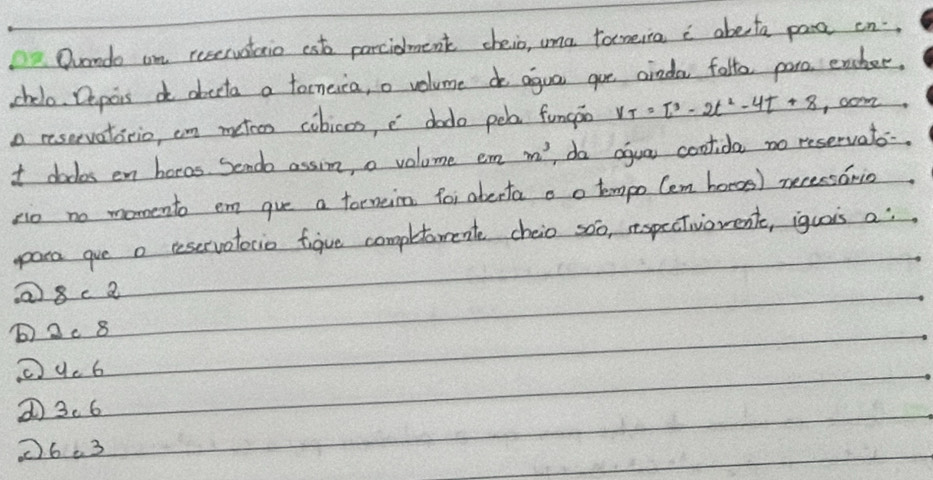 02 Quando um reservatorio está parcialment cheio, uma torneira é aberta para en-
chelo. Depois de aberta a torneira, o volume de água que ainda falta para encher,
o reservatório, em metros cúbicos, é dado pela função VT = T³ - 2t² - 4T + 8, com
t dados em horas. Sendo assim, o volume em m³, da água contida no reservató-
rio no momento em que a torneira foi aberta e o tempo (em horas) necessário
para que o reservatorio fique completamente cheio são, respectivamente, iguais a:
a) 8 e 2
b) 2 e 8
c) 4 e 6
d) 3 e 6
e) 6 e 3